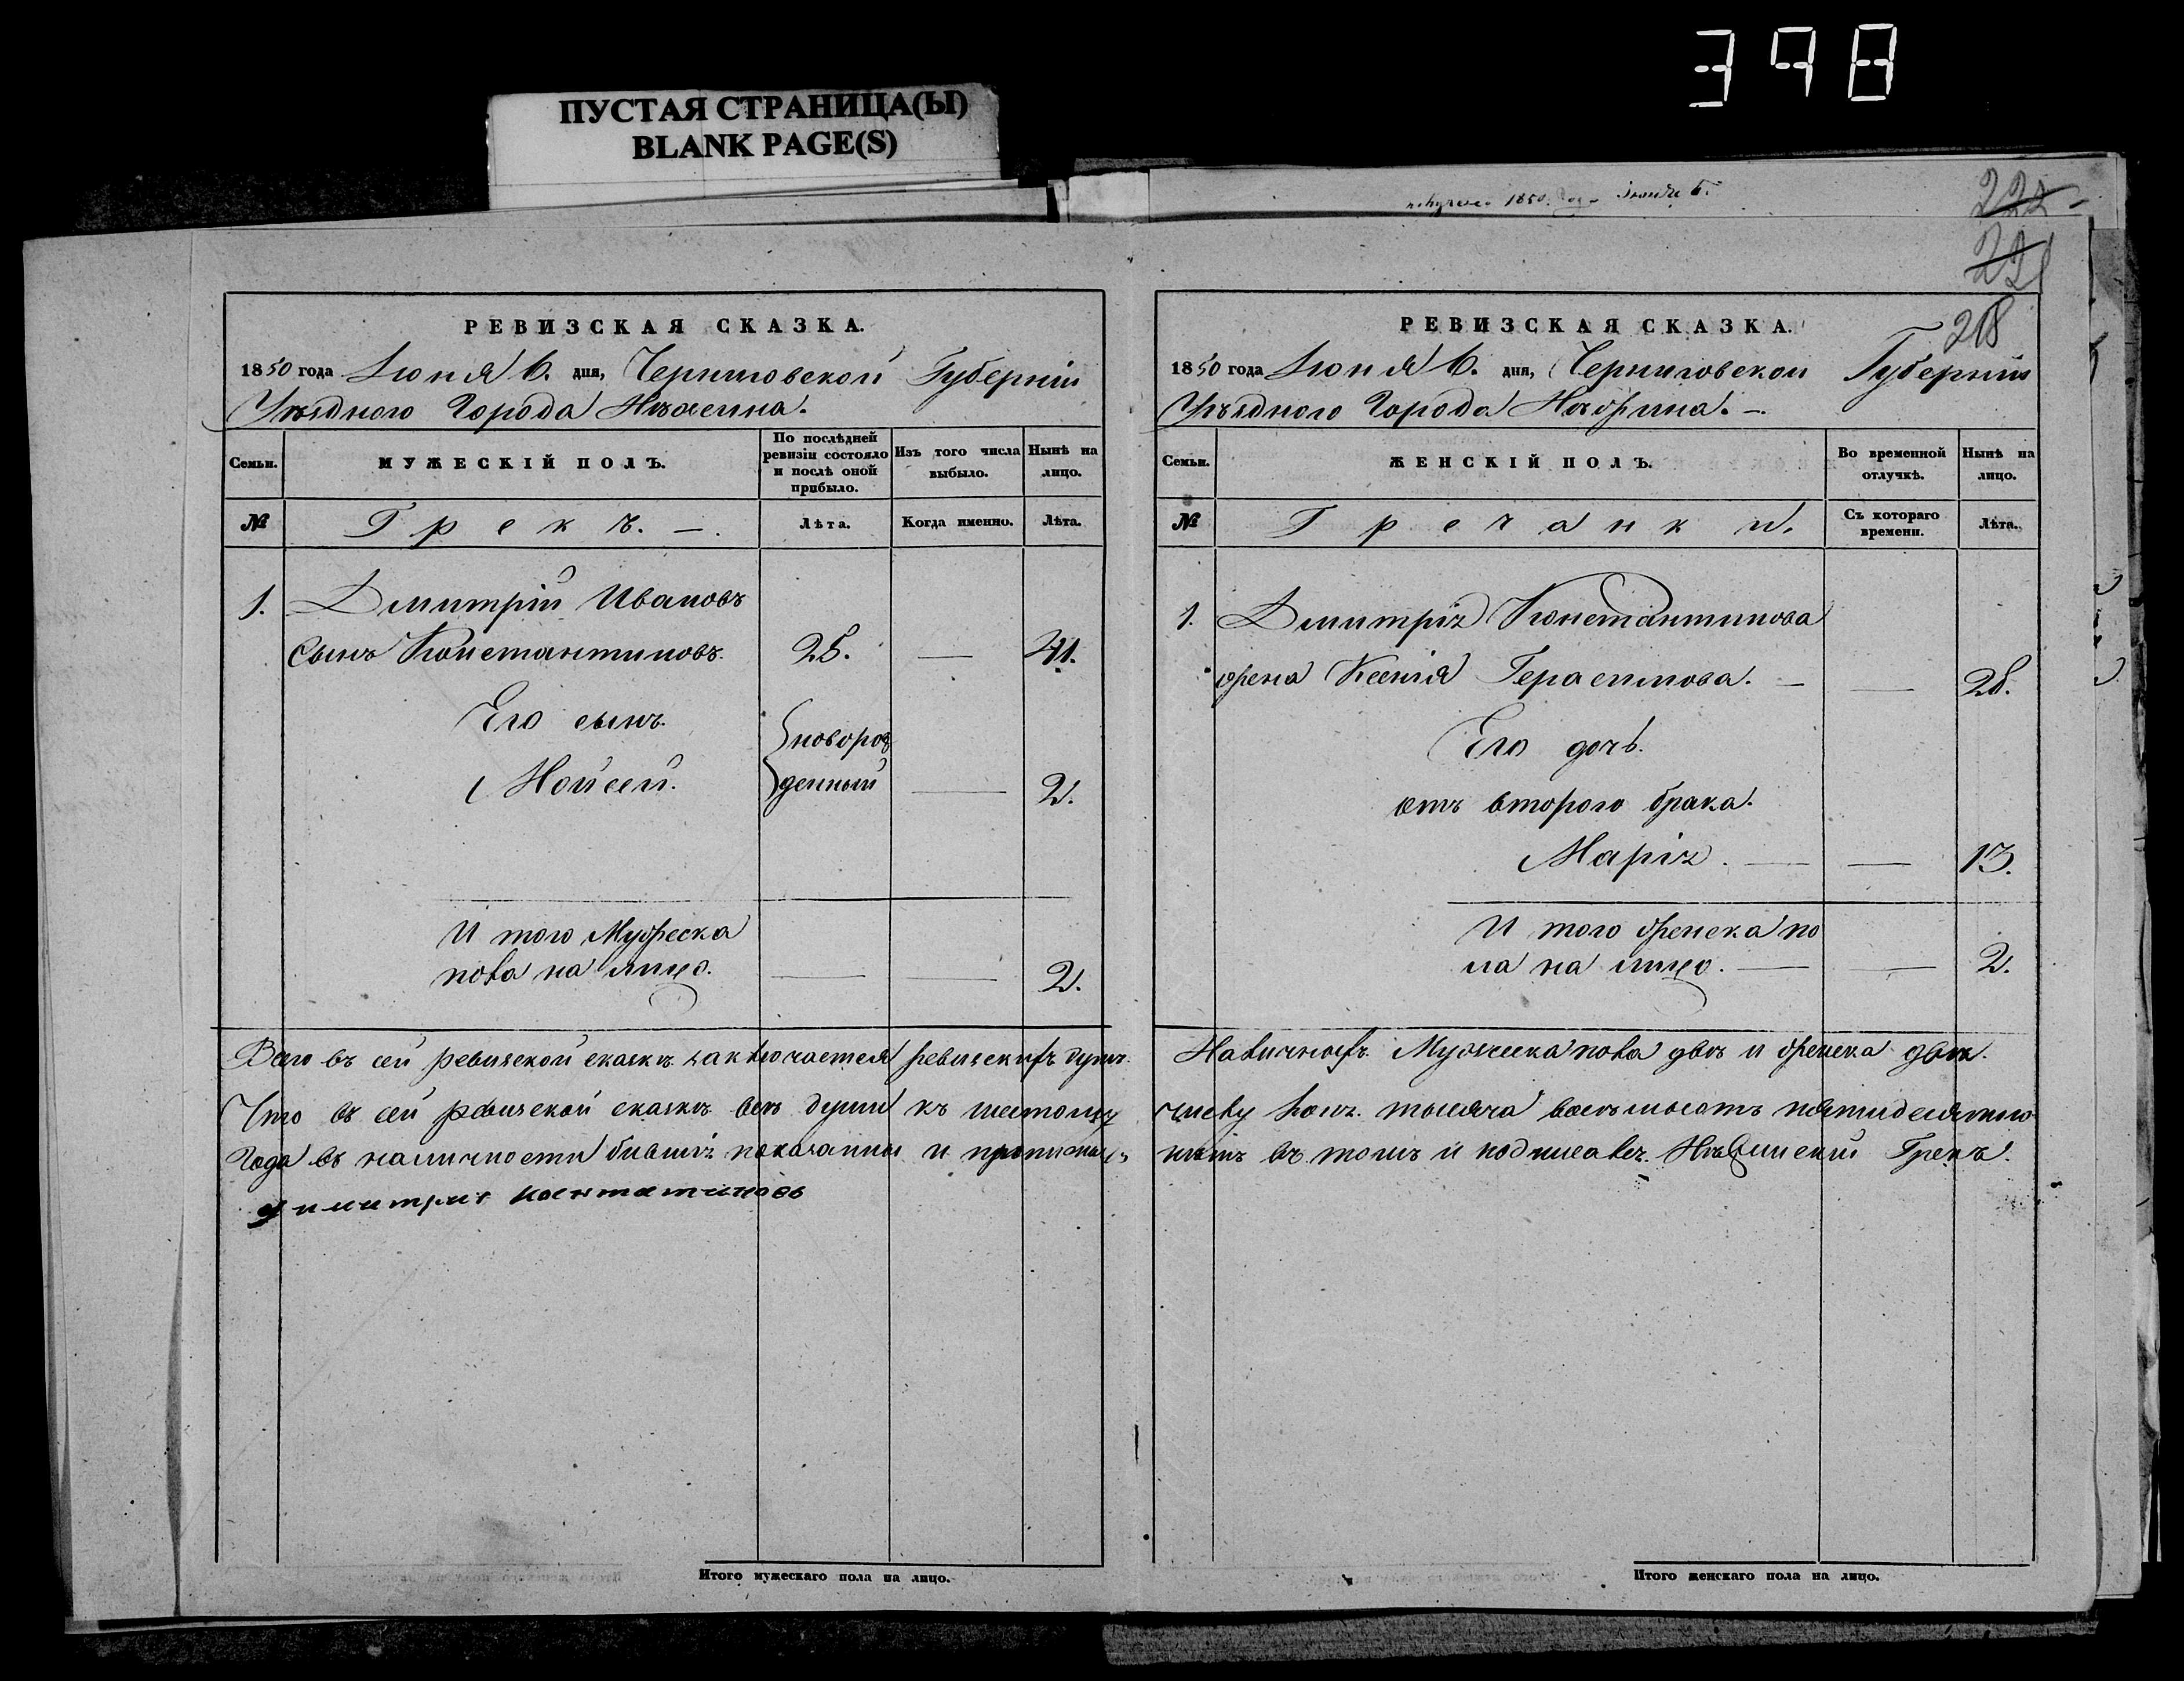 398
ПУСТАЯ СТРАНИЦА(Ы)
BLANK PAGE(S)
РЕВИЗСКАЯ СКАЗКА.
1850 года Іюня 6. дня, Черниговской Губерніи
Уѣзднаго Города Нѣжина.
Семьи.
МУЖЕСКІЙ ПОЛЪ.
По послѣдней ревизіи состояло и послѣ оной прибыло.
Изъ того числа выбыло.
Нынѣ на лицо.
№
Грекъ. —.
Лѣта.
Когда именно.
Лѣта.
1. Дмитрій Ивановъ
сынъ Константиновъ. 25. — 41.
Его сынъ.
Мойсей. новорожденный — 2.
И того Мужеска
пола на лицо. — — 2.
Всего въ сей ревизской сказкѣ заключается ревизскихъ душъ.
Что въ сей ревизской сказкѣ всѣ души къ шестому
Года въ наличности бывшіе показаны и
Димитрий Контатиновъ
Итого мужескаго пола на лицо.
1850. Іюня 6.
222
221
218
РЕВИЗСКАЯ СКАЗКА.
1850 года Іюня 6. дня, Черниговской Губерніи
Уѣзднаго Города Нѣжина. —
Семьи.
ЖЕНСКІЙ ПОЛЪ.
Во временной отлучкѣ.
Нынѣ на лицо.
№
Гречанки.
Съ котораго времени.
Лѣта.
1. Дмитрія Константинова
жена Ксенія Герасимова. — — 28.
Его дочь.
отъ второго брака.
Марія. — — 13.
И того женска по
ла на лицо. — — 2.
Наличныхъ Мужеска пола двѣ и женска двѣ.
числу тысяча восемьсотъ пятидесятого
въ томъ и подписався. Нѣжинскій Грекъ.
Итого женскаго пола на лицо.